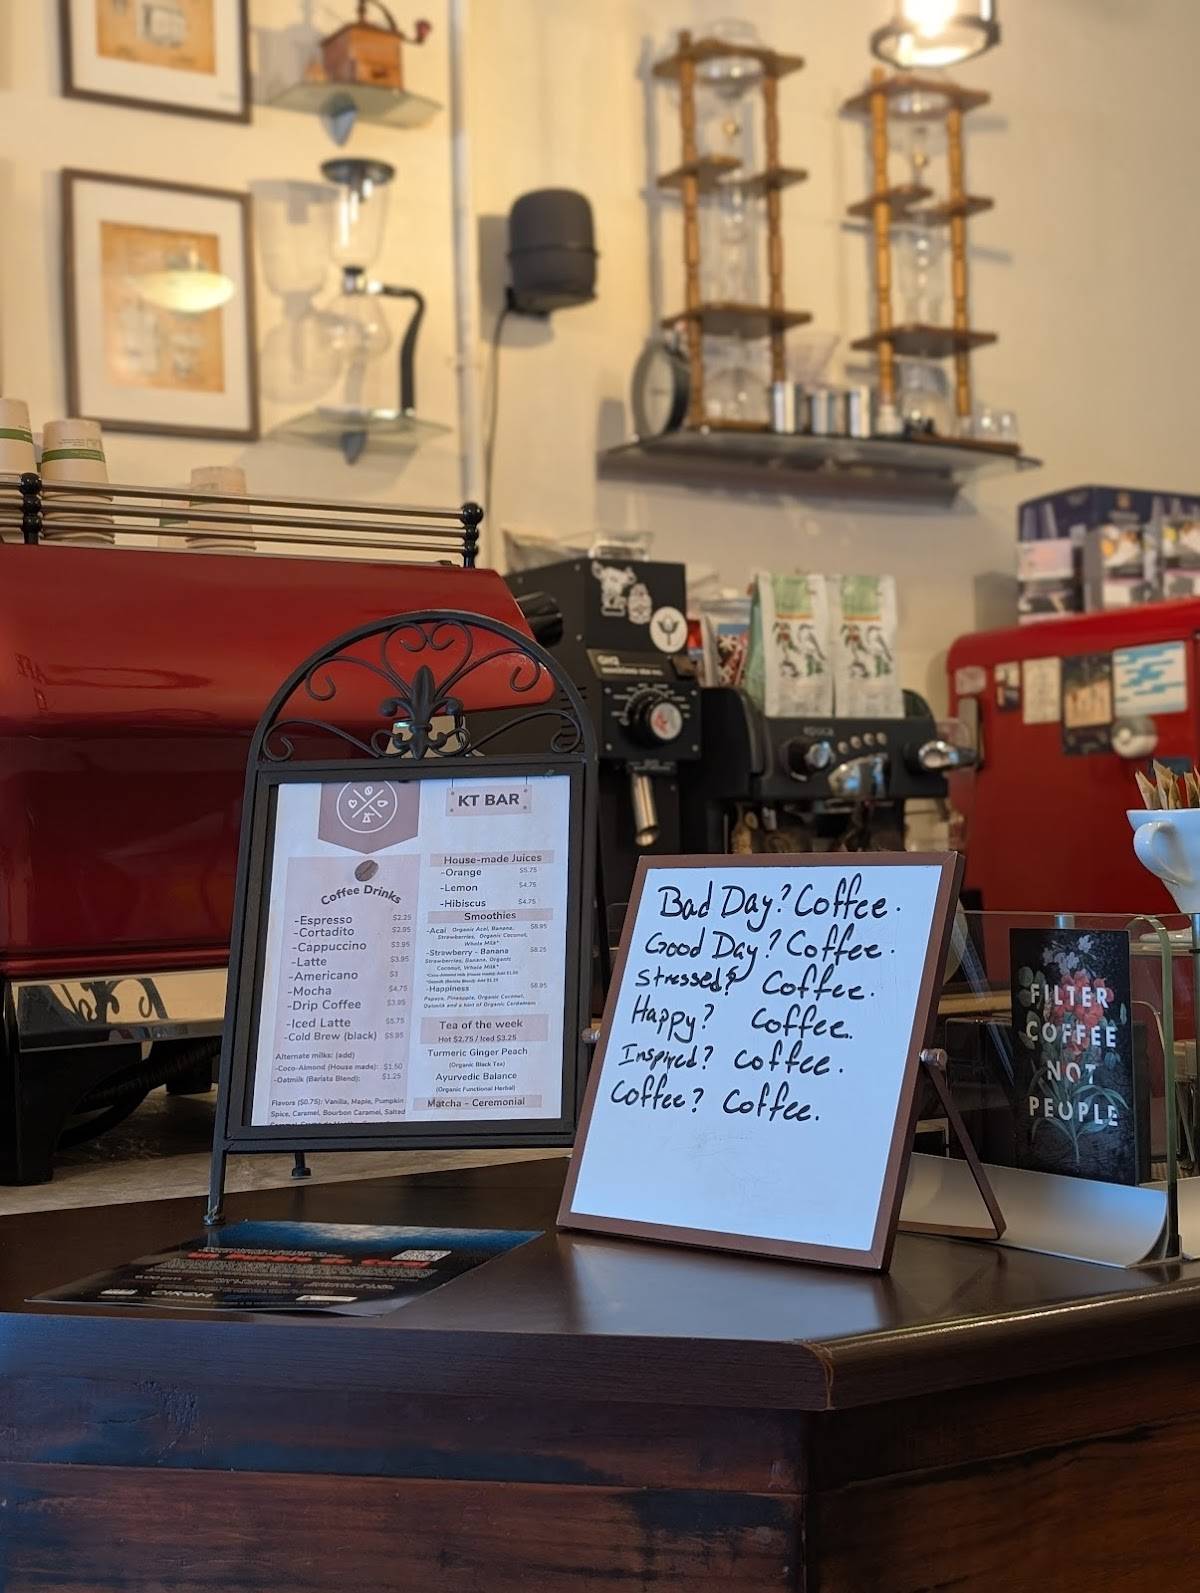 KT BAR
Coffee Drinks
-Espresso $2.25
-Cortadito $2.95
-Cappuccino $3.95
-Latte $3.95
-Americano $3
-Mocha $4.75
-Drip Coffee $3.95
-Iced Latte $5.75
-Cold Brew (black) $5.95
Alternate milks: (add)
-Coco-Almond (House made): $1.50
-Oatmilk (Barista Blend): $1.25
Flavors ($0.75): Vanilla, Maple, Pumpkin
Spice, Caramel, Bourbon Caramel, Salted
House-made Juices
-Orange $5.75
-Lemon $4.75
-Hibiscus $4.75
Smoothies
-Acai Organic Acai, Banana, $8.95
Strawberries, Organic Coconut,
Whole Milk*
-Strawberry - Banana $8.25
Strawberries, Banana, Organic
Coconut, Whole Milk*
-Happiness $8.95
Papaya, Pineapple, Organic Coconut,
Oatmilk and a hint of Organic Cardamom
Tea of the week
Hot $2.75 / Iced $3.25
Turmeric Ginger Peach
(Organic Black Tea)
Ayurvedic Balance
(Organic Functional Herbal)
Matcha - Ceremonial
Bad Day? Coffee.
Good Day? Coffee.
Stressed? Coffee.
Happy? Coffee.
Inspired? Coffee.
Coffee? Coffee.
FILTER
COFFEE
NOT
PEOPLE